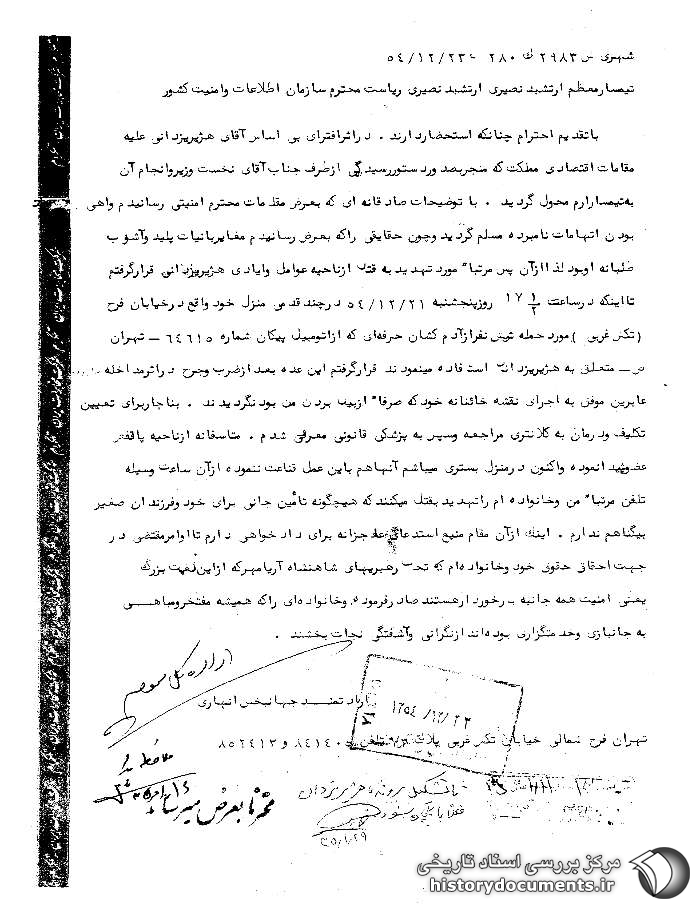 شهری س ۲۹۸۳ ك ۲۸۰ - ۵۴/۱۲/۲۳
تیمسارمعظم ارتشبد نصیری ارتشبد نصیری ریاست محترم سازمان اطلاعات وامنیت کشور
باتقدیم احترام چنانکه استحضاردارند . دراثرافترای بی اساس آقای هژبریزدانی علیه
مقامات اقتصادی مملکت که منجربصد وردستوررسیدگی ازطرف جناب آقای نخست وزیروانجام آن
به تیمسارارم محول گردید . با توضیحات صادقانه ای که بعرض مقامات محترم امنیتی رسانیدم واهی
بودن اتهامات نامبرده مسلم گردید وچون حقایقی راکه بعرض رسانیدم مغایربانیات پلید وآشوب
طلبانه اوبود لذا ازآن پس مرتبا" مورد تهدید به قتل ازناحیه عوامل وایادی هژبریزدانی قرارگرفتم
تااینکه درساعت ۱۷ ۱/۲ روزپنجشنبه ۵۴/۱۲/۲۱ درچند قدمی منزل خود واقع درخیابان فرح
(تکش غربی) مورد حمله شش نفرازآدم کشان حرفه‌ای که ازاتومبیل پیکان شماره ۶۴۶۱۵ – تهران
ص – متعلق به هژبریزدانی استفاده مینمودند قرارگرفتم این عده بعد ازضرب وجرح دراثرمداخله
عابرین موفق به اجرای نقشه خائنانه خود که صرفا" ازبین بردن من بود نگردیدند . بناچاربرای تعیین
تکلیف ودرمان به کلانتری مراجعه وسپس به پزشکی قانونی معرفی شدم . متاسفانه ازناحیه پاقطع
عضو پیدانموده واکنون درمنزل بستری میباشم آنهاهم باین عمل قناعت ننموده ازآن ساعت وسیله
تلفن مرتبا" من وخانواده ام راتهدید بقتل میکنند که هیچگونه تأمین جانی برای خود وفرزندان صغیر
بیگناهم ندارم . اینك ازآن مقام منیع استدعای عاجزانه برای دادخواهی دارم تااوامرمقتضی در
جهت احقاق حقوق خود وخانواده‌ام که تحت رهبریهای شاهنشاه آریامهرکه ازاین نعمت بزرگ
یعنی امنیت همه جانبه برخوردارهستند صادرفرموده وخانواده‌ای راکه همیشه مفتخرومباهی
به جانبازی وخدمتگزاری بوده‌اند ازنگرانی وآشفتگی نجات بخشند .
اداره کل سوم
ارادتمند جهانبخش انهاری
۱۳۵۴/۱۲/۲۳
تهران فرح شمالی خیابان تکش غربی پلاك تلفن ۸۴۱۴۰ و ۸۵۲۴۱۳
ملاحظه شد
محترما بعرض میرساند
هژبر یزدانی
۳۵/۱/۲۹
مرکز بررسی اسناد تاریخی
historydocuments.ir